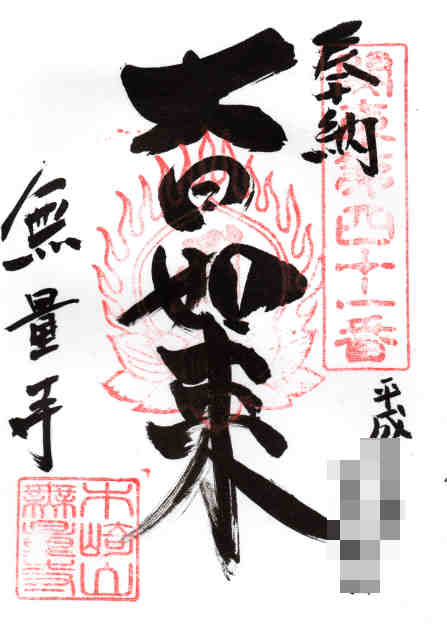 奉納
関東第四十一番
大日如来
平成
無量寺
木崎山
無量寺